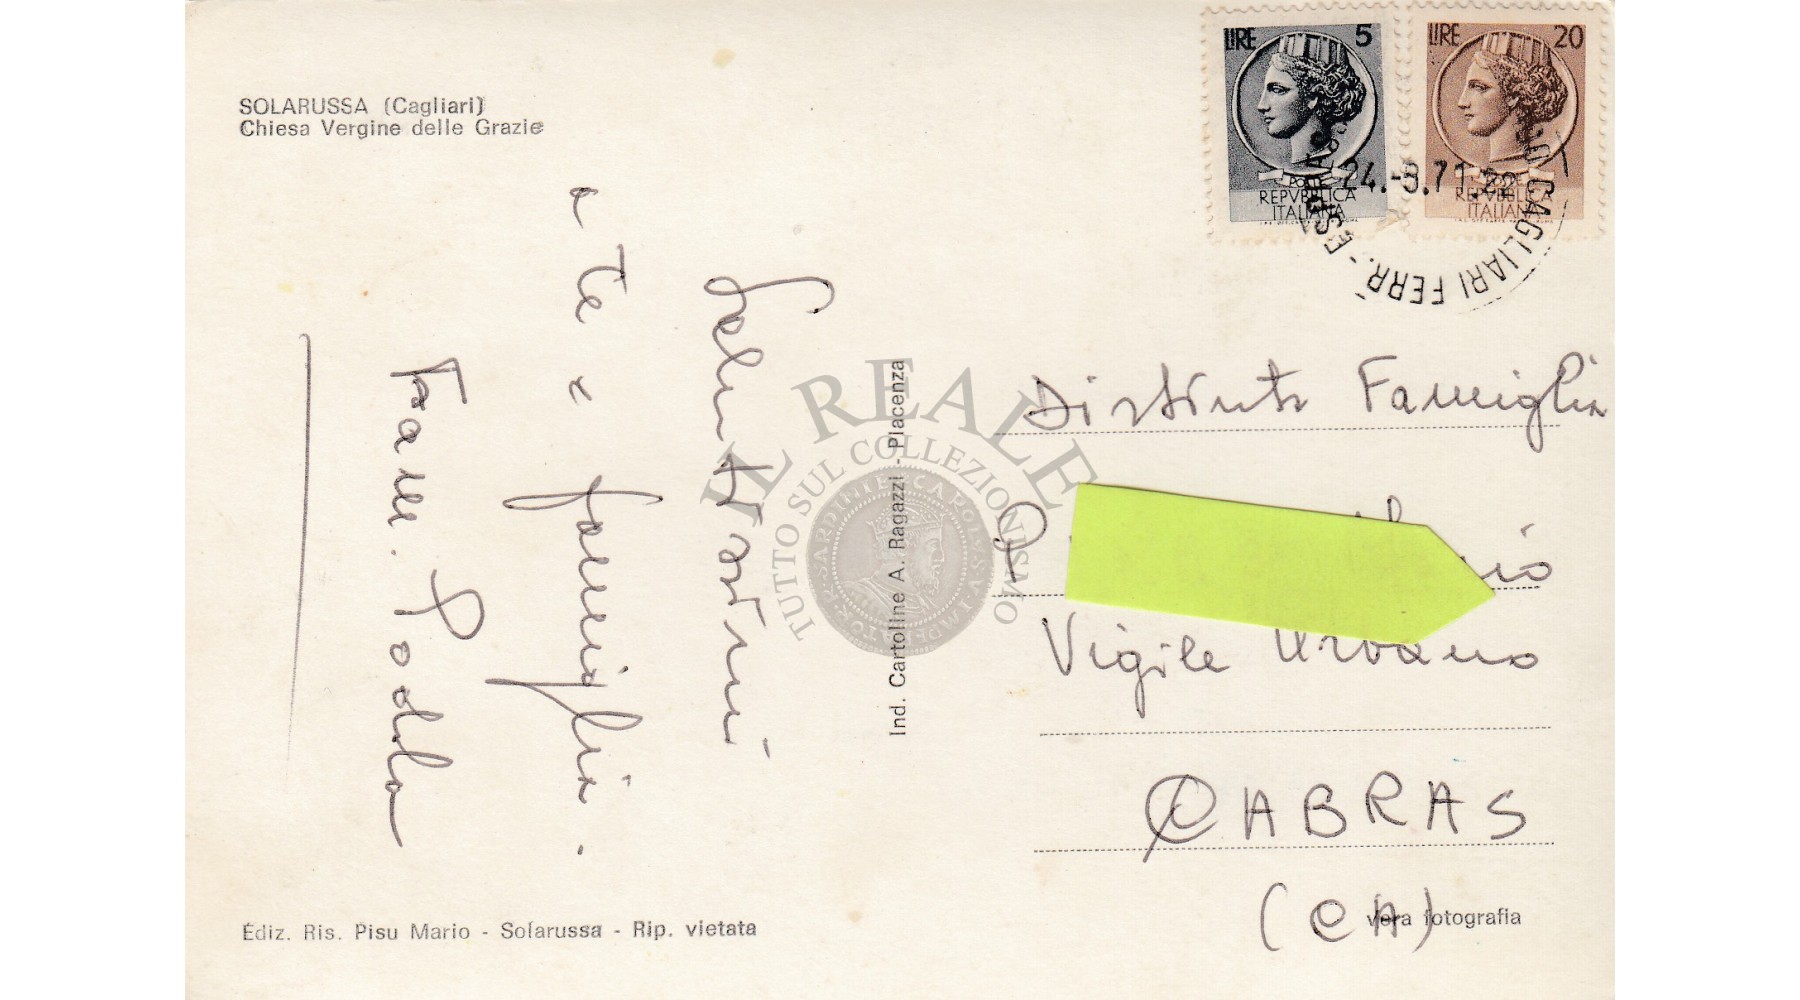 SOLARUSSA (Cagliari)
Chiesa Vergine delle Grazie
LIRE 5
POSTE
REPVBBLICA
ITALIANA
LIRE 20
POSTE
REPVBBLICA
ITALIANA
24.-8.71.22
CAGLIARI FERR.
Saluti
a te e famiglia.
Fam. Podda
IL REALE
TUTTO SUL COLLEZIONISMO
Ind. Cartoline A. Ragazzi - Piacenza
Distinta Famiglia
Vigile Urbano
CABRAS
(CA)
vera fotografia
Ediz. Ris. Pisu Mario - Solarussa - Rip. vietata